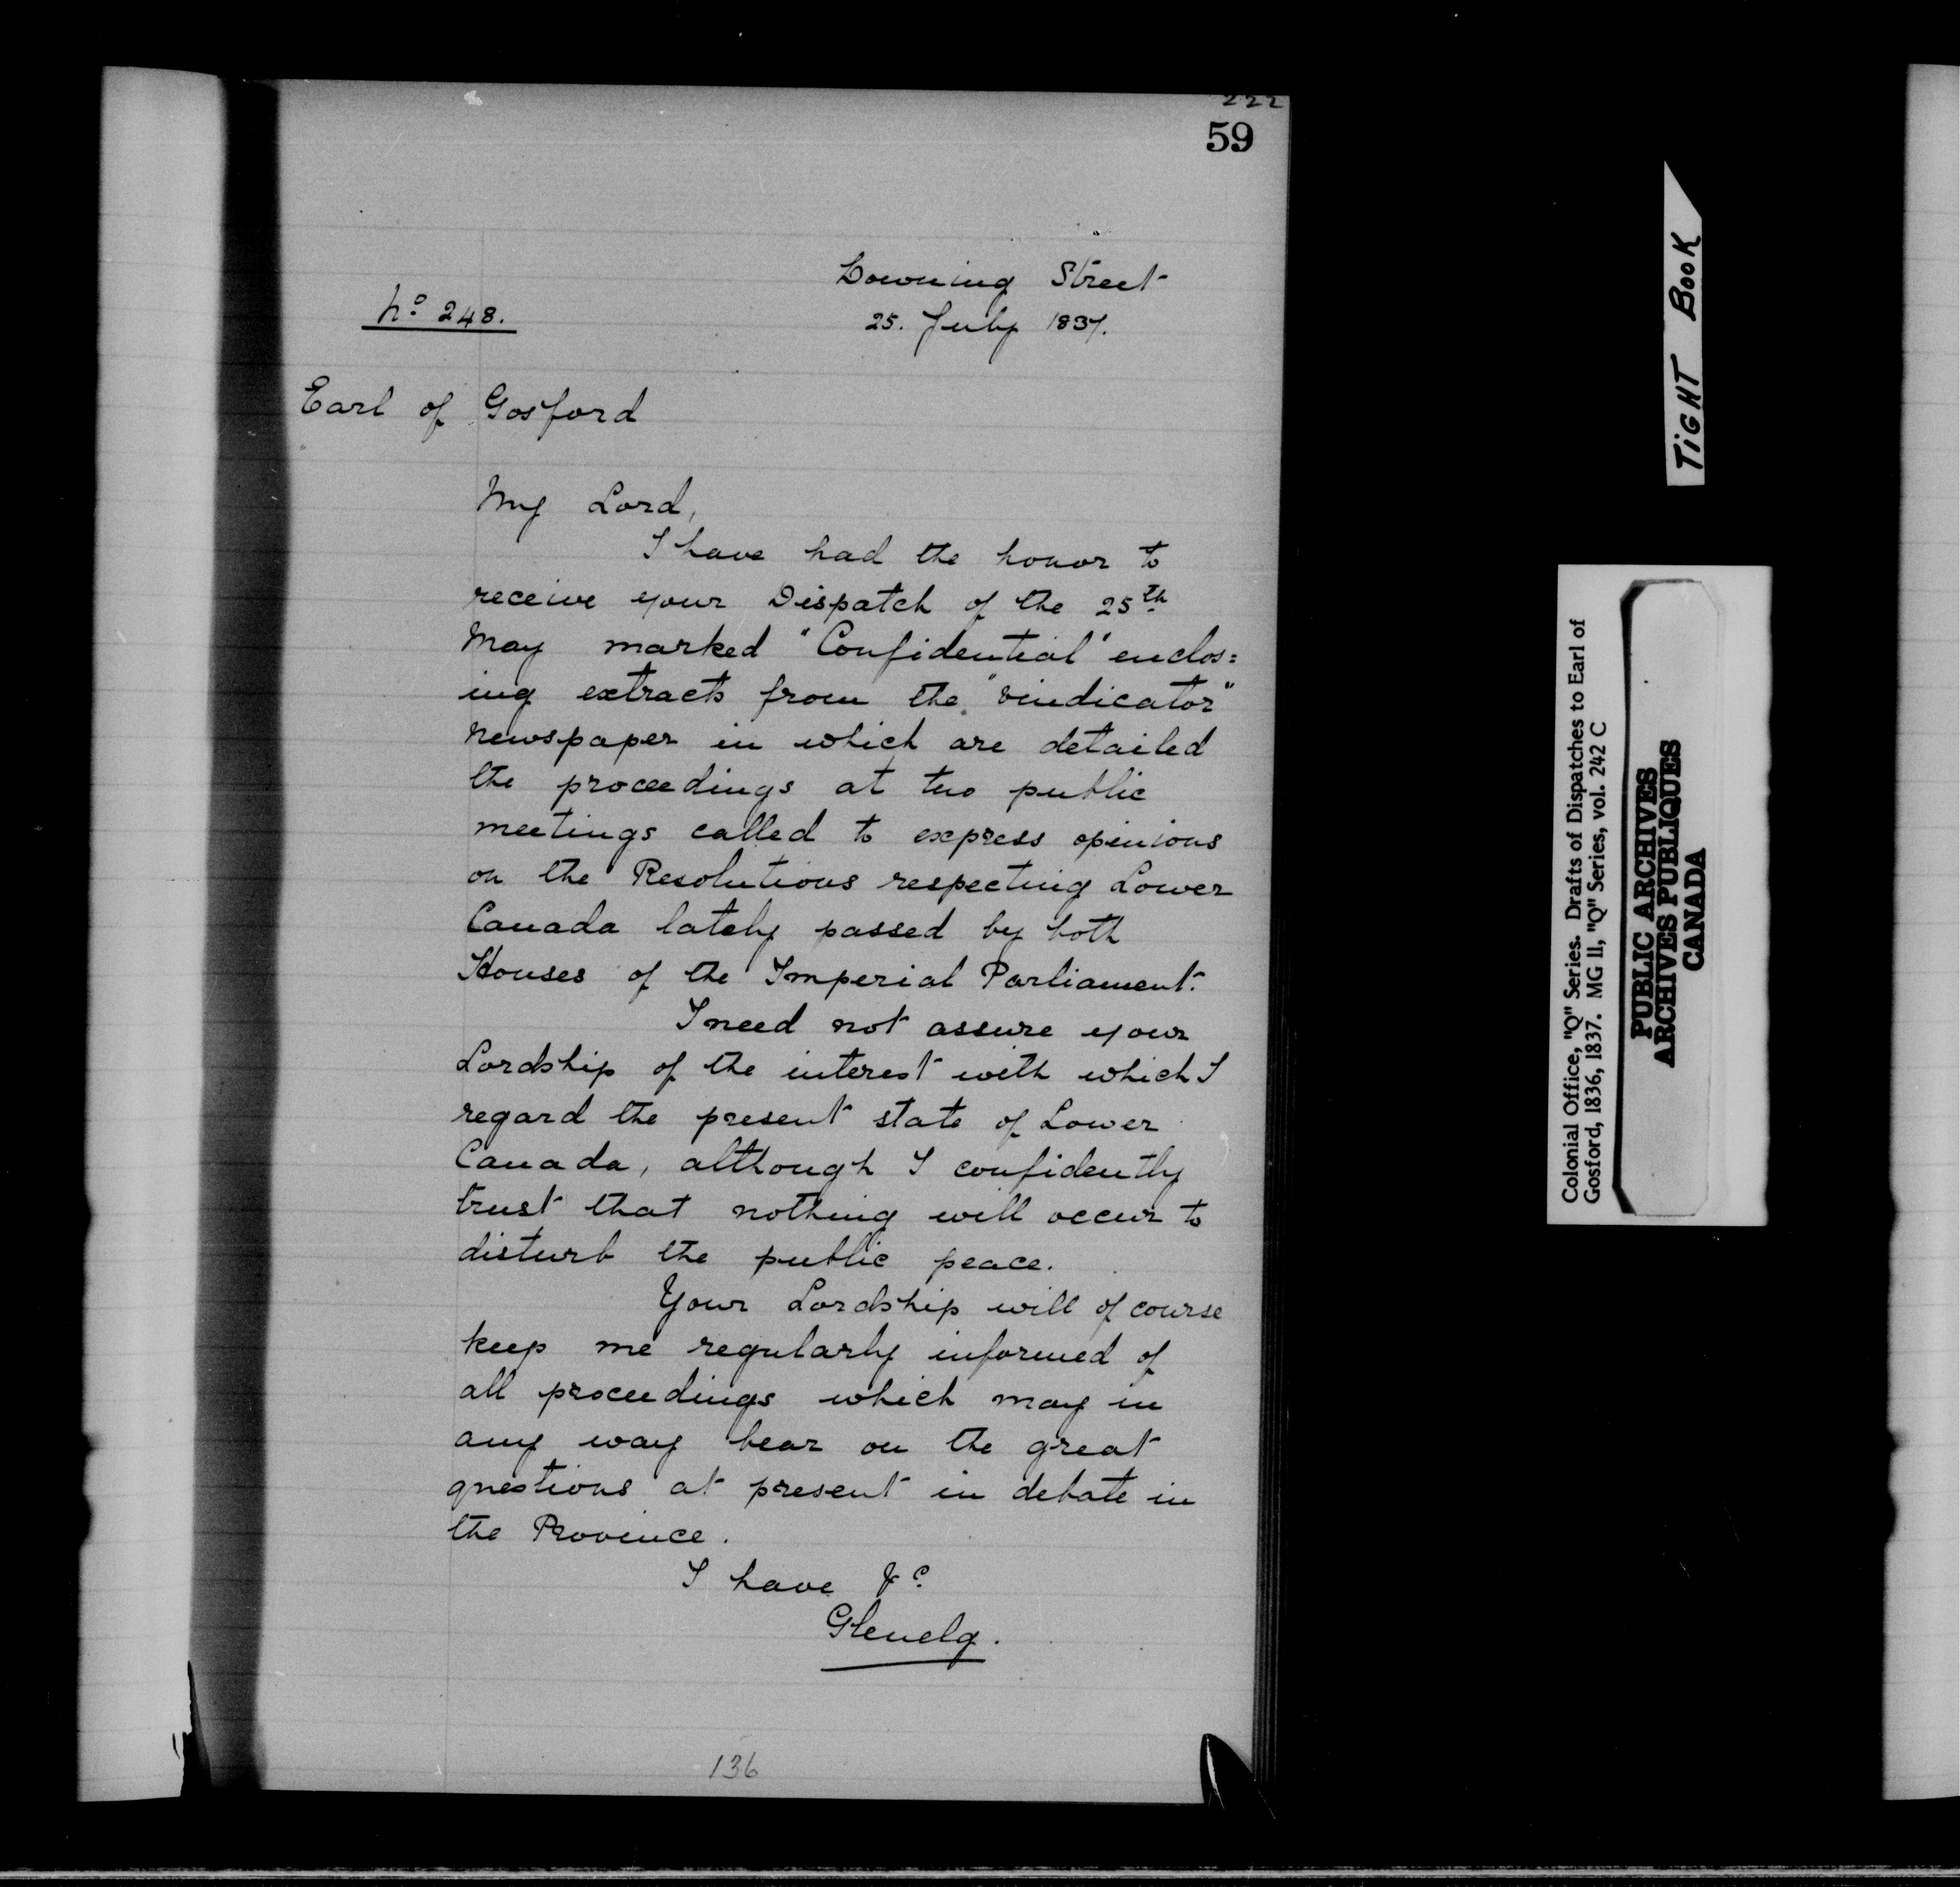 222
59
Downing Street
No. 248.
25. July 1837.
Earl of Gosford
My Lord,
I have had the honor to
receive your Dispatch of the 25th
May marked "Confidential" enclos=
ing extracts from the "Vindicator"
Newspaper in which are detailed
the proceedings at two public
meetings called to express opinions
on the Resolutions respecting Lower
Canada lately passed by both
Houses of the Imperial Parliament.
I need not assure your
Lordship of the interest with which I
regard the present state of Lower
Canada, although I confidently
trust that nothing will occur to
disturb the public peace.
Your Lordship will of course
keep me regularly informed of
all proceedings which may in
any way bear on the great
questions at present in debate in
the Province.
I have &c.
Glenelg.
136
TIGHT BOOK
Colonial Office, "Q" Series. Drafts of Dispatches to Earl of
Gosford, 1836, 1837. MG 11, "Q" Series, vol. 242 C
PUBLIC ARCHIVES
ARCHIVES PUBLIQUES
CANADA